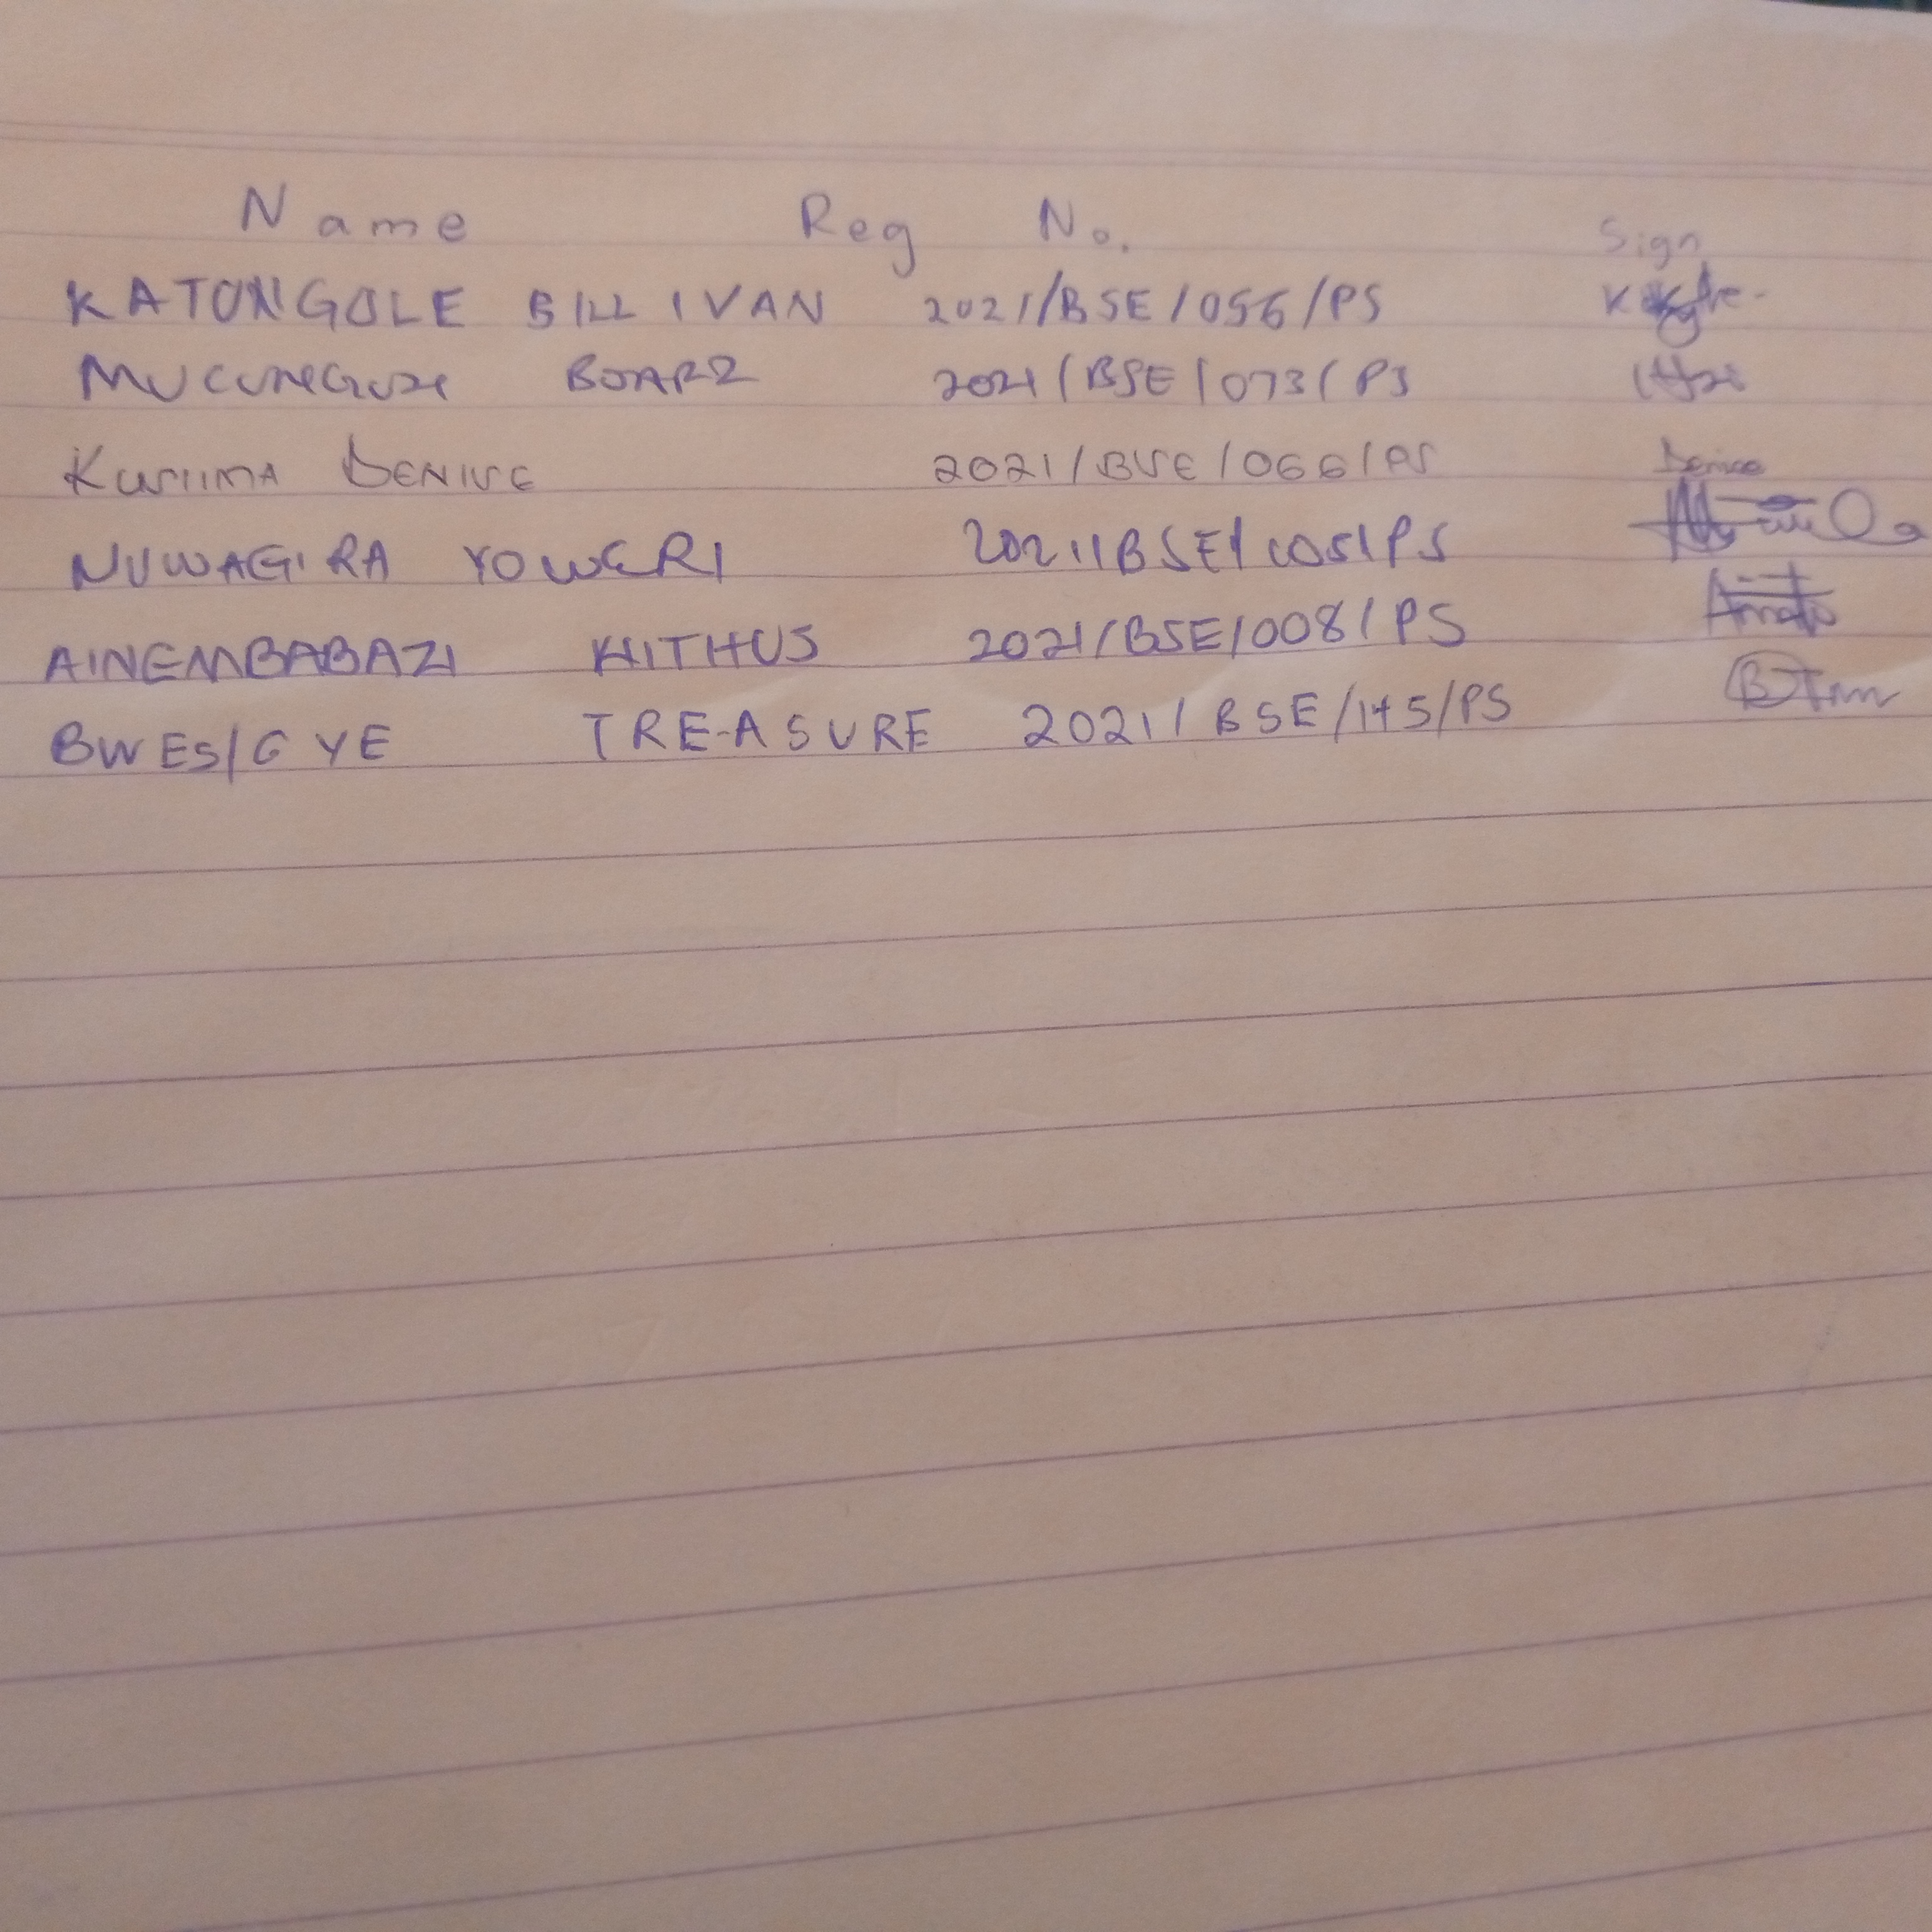 Name Reg No. Sign
KATONGOLE BILL IVAN 2021/BSE/056/PS
MUCUNGUZI BOAZ 2021/BSE/073/PS
KUSIIMA DENISE 2021/BSE/066/PS Denise
NUWAGIRA YOWERI 2021/BSE/105/PS
AINEMBABAZI KIITHUS 2021/BSE/008/PS
BWESIGYE TREASURE 2021/BSE/145/PS